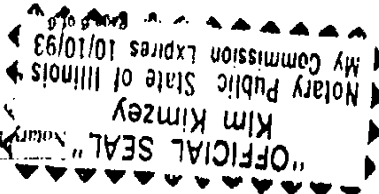 "OFFICIAL SEAL"
Kim Kimzey
Notary Public State of Illinois
My Commission Expires 10/10/93
Notary